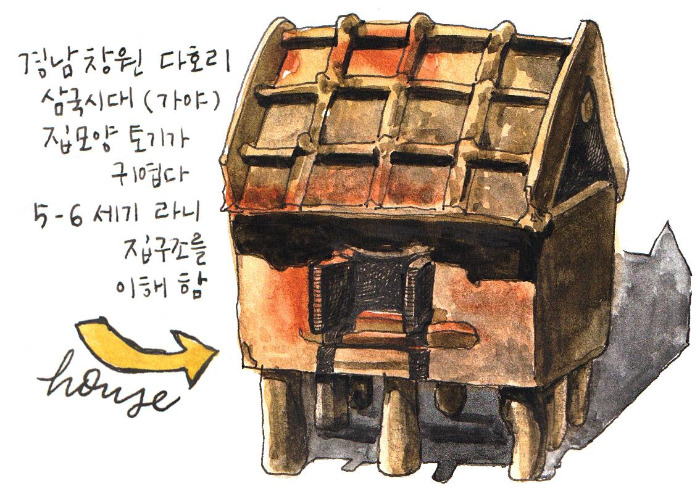 경남 창원 다호리
삼국시대 (가야)
집모양 토기가
귀엽다
5-6 세기 라니
집구조를
이해 함
house